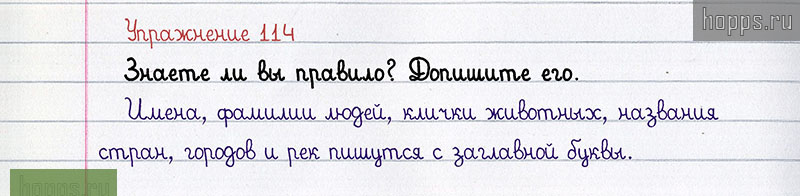 hopps.ru
Упражнение 114
Знаете ли вы правило? Допишите его.
Имена, фамилии людей, клички животных, названия
стран, городов и рек пишутся с заглавной буквы.
hopps.ru